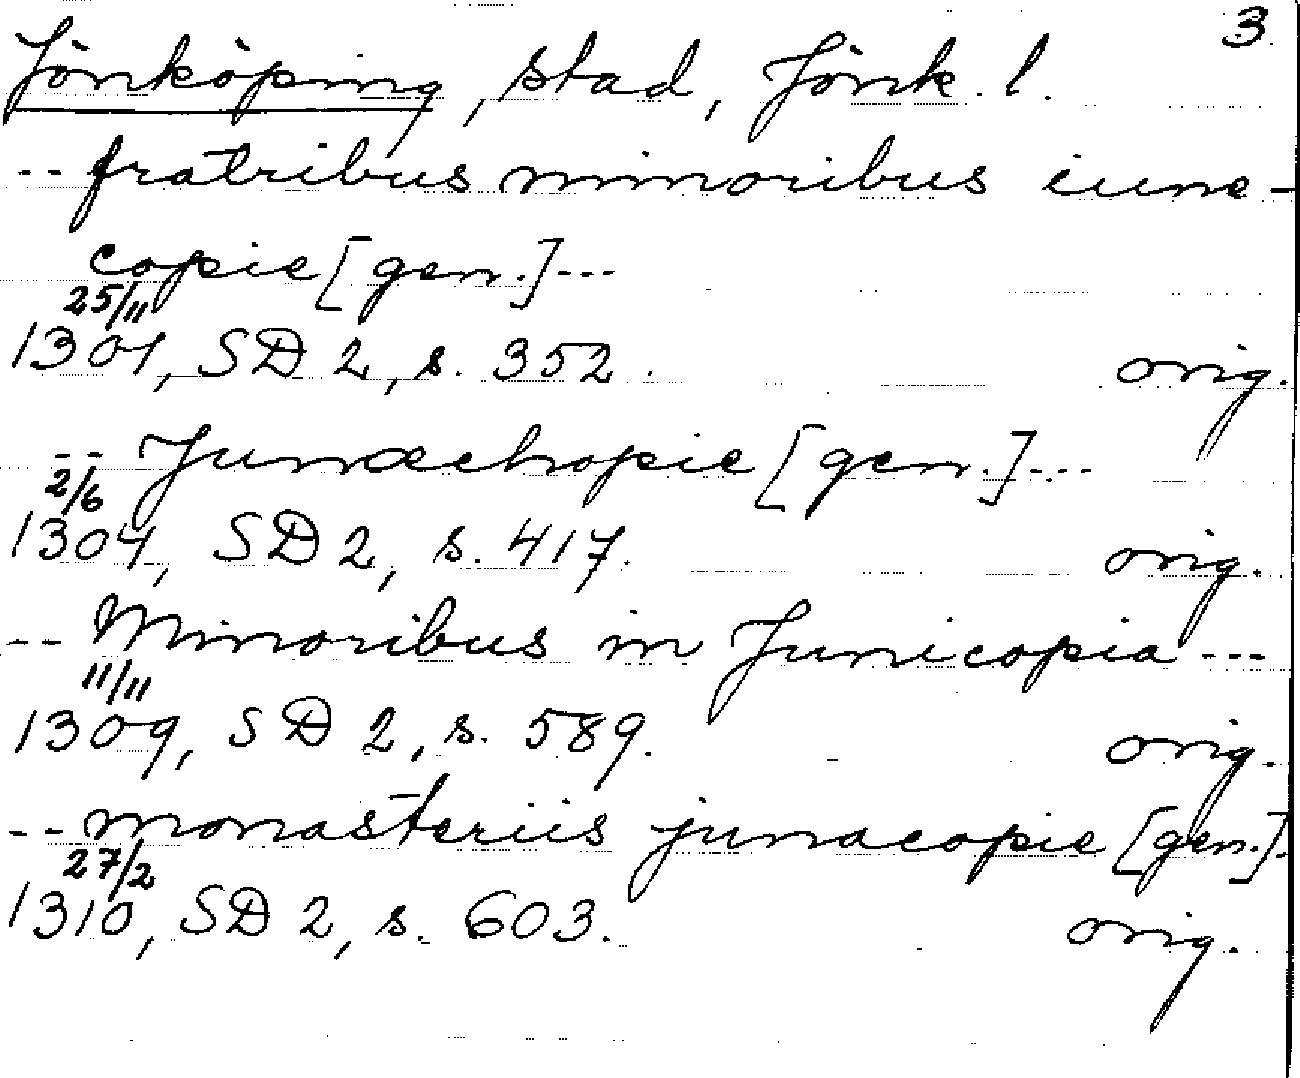 3
Jönköping, stad, Jönk. l.
-- fratribus minoribus iune-
copie [gen.] ---
25/11
1301, SD 2, s. 352. orig.
-- Junæchopie [gen.] ---
2/6
1304, SD 2, s. 417. orig.
-- Minoribus in Junicopia ---
11/11
1309, SD 2, s. 589. orig.
-- monasteriis junacopie [gen.].
27/2
1310, SD 2, s. 603. orig.